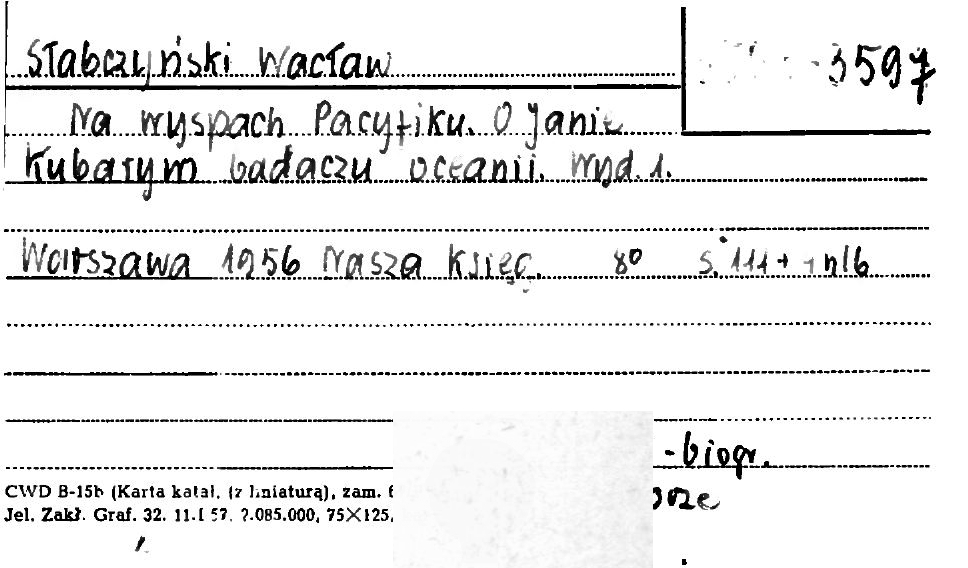 Słabczyński Wacław
3597
Na wyspach Pacyfiku. O Janie
Kubarym badaczu oceanii. Wyd. 1.
Warszawa 1956 Nasza Księg. 8º s. 111 + 1 nlb
-biogr.
CWD B-15b (Karta katal. (z liniaturą), zam.
Jel. Zakł. Graf. 32. 11.I 57. 2.085.000, 75X125.